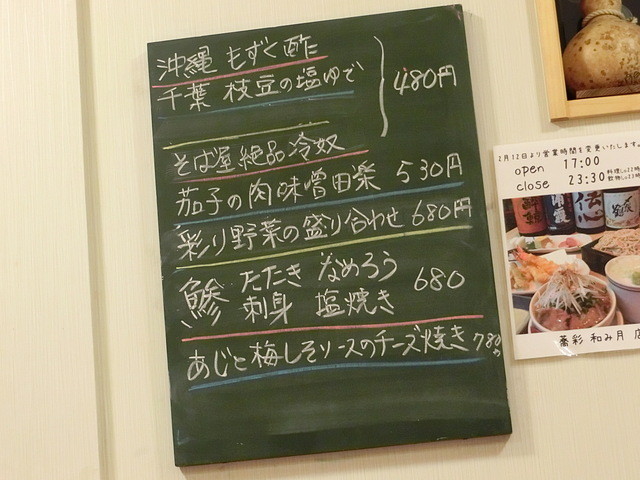 沖縄 もずく酢
千葉 枝豆の塩ゆで
480円
そば屋絶品冷奴
茄子の肉味噌田楽 530円
彩り野菜の盛り合わせ 680円
鯵 たたき なめろう
刺身 塩焼き
680
あじと梅しそソースのチーズ焼き 780円
2月12日より営業時間を変更いたします。
open 17:00
close 23:30
蕎彩 和み月 店